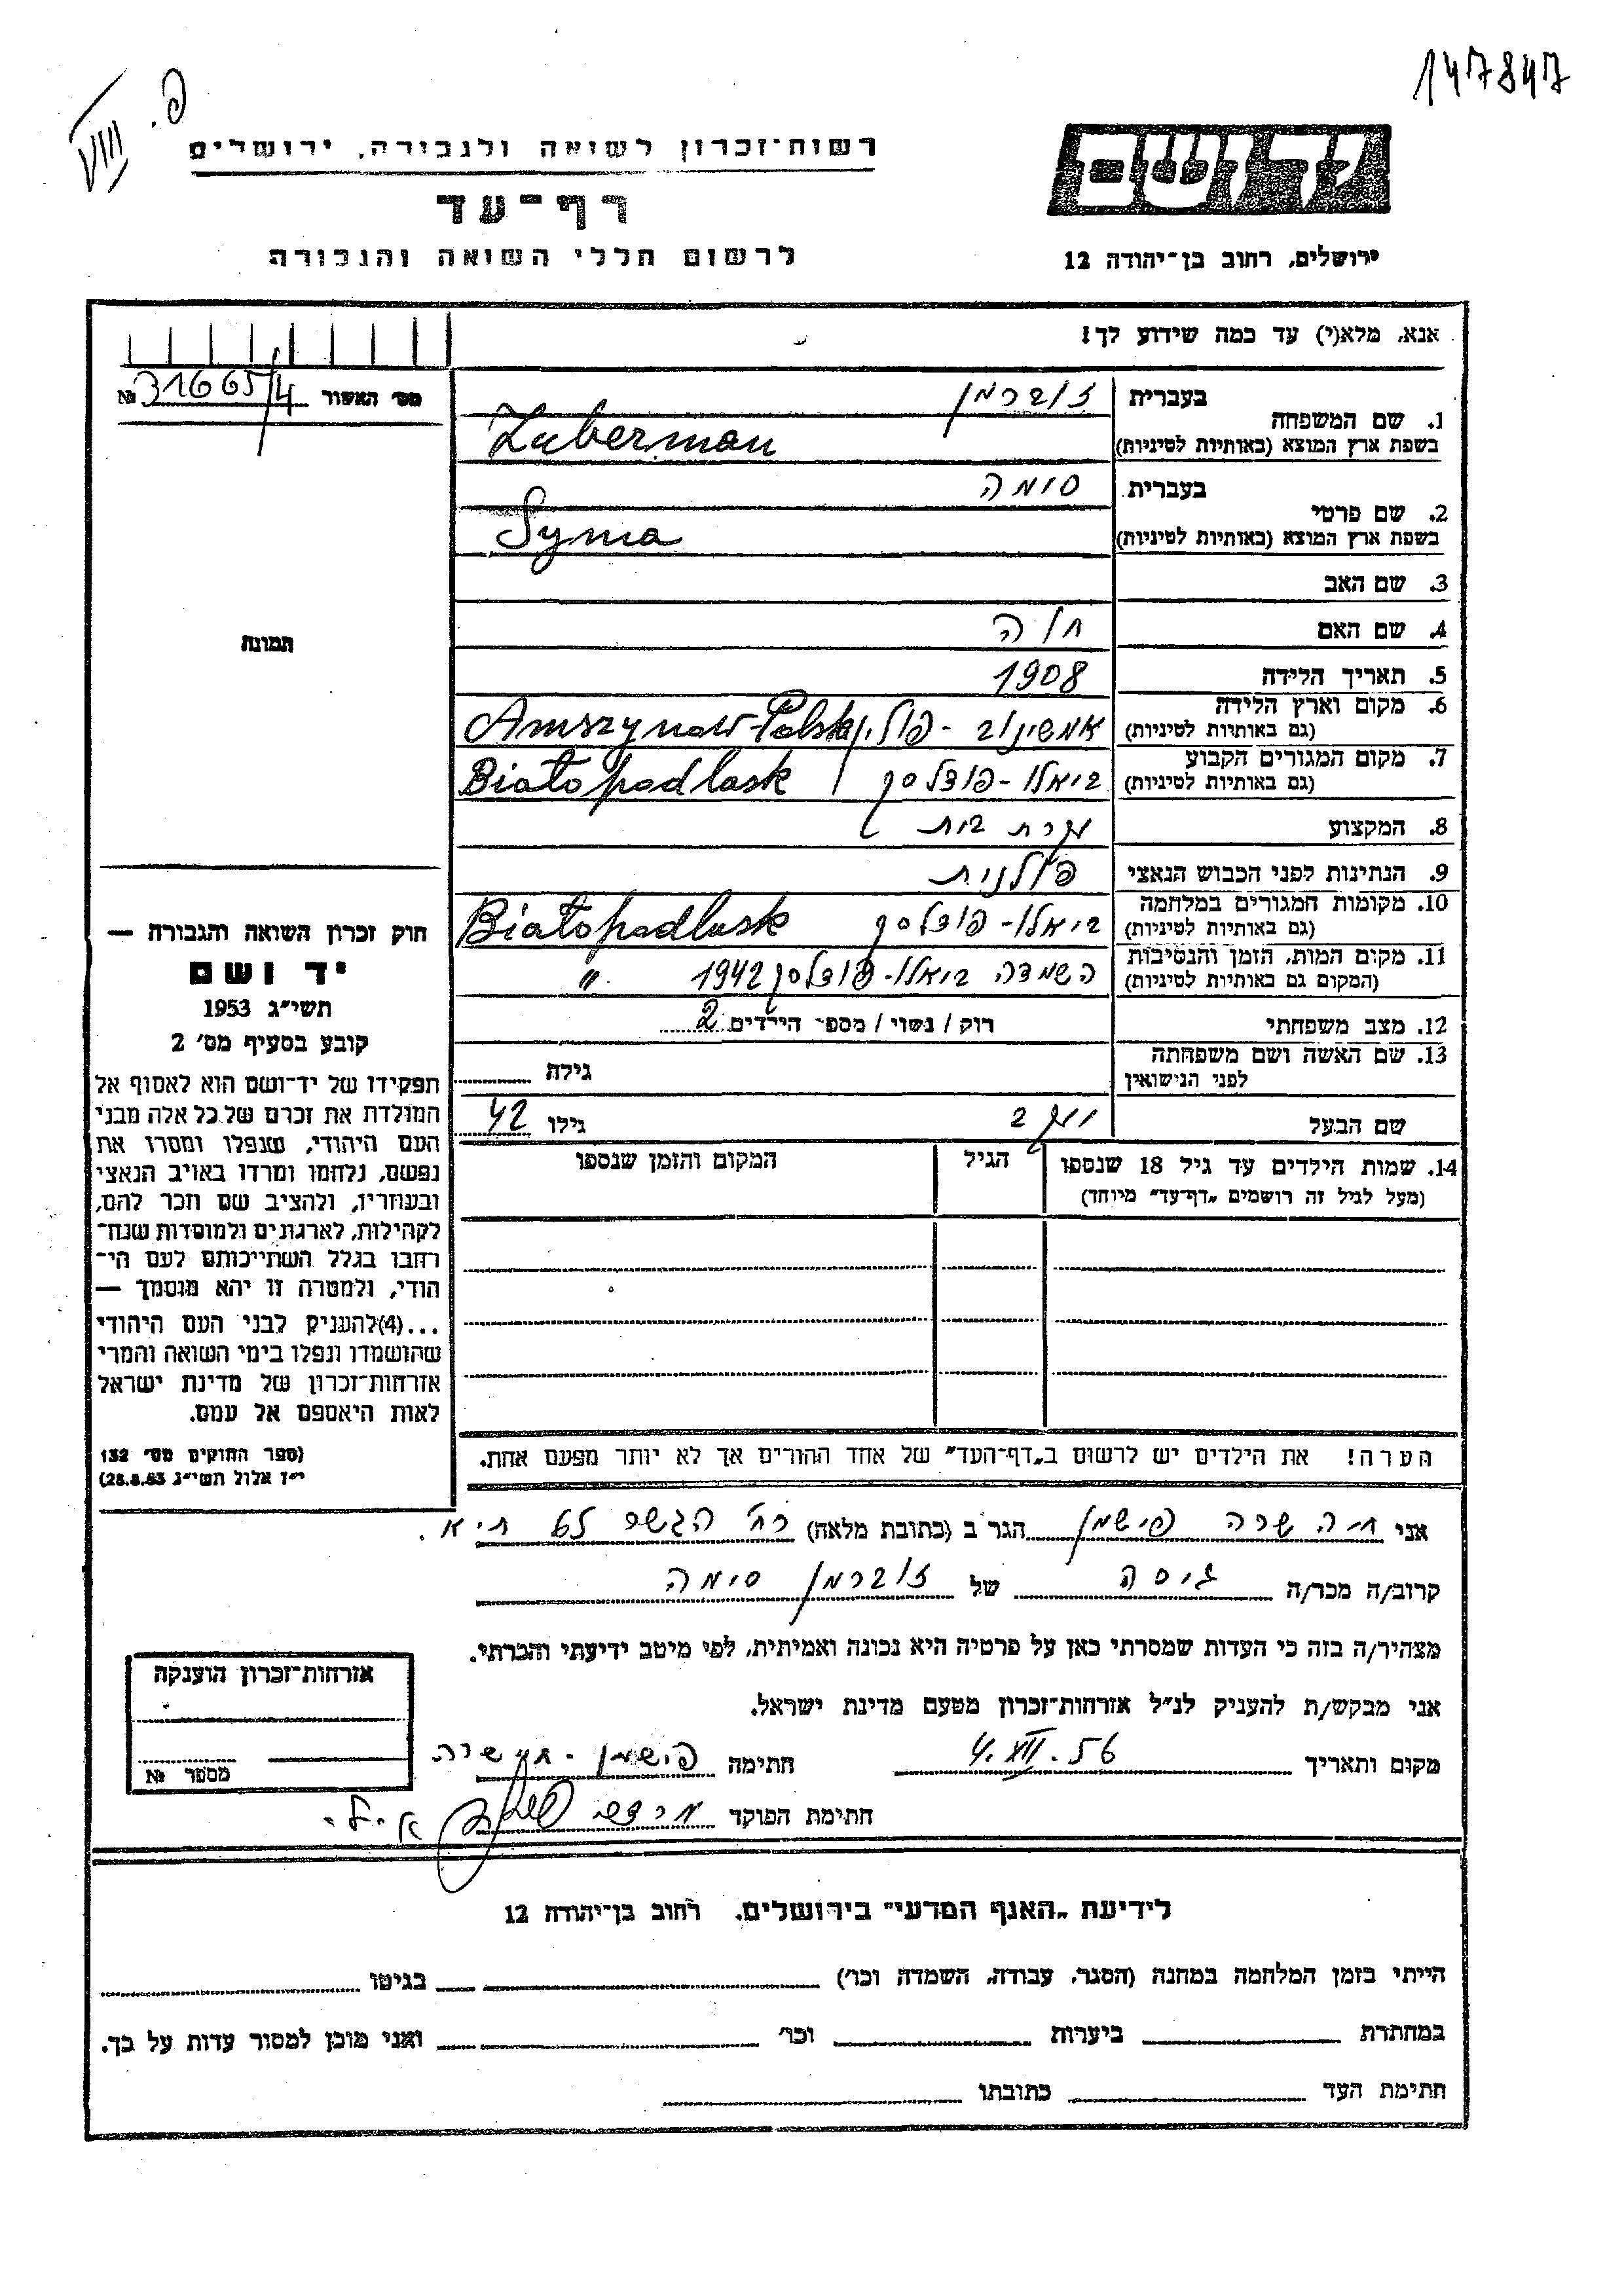 147847
פ.
VIII
יד ושם
רשות־זכרון לשואה ולגבורה, ירושלים
דף־עד
ירושלים, רחוב בן־יהודה 12
לרשום חללי השואה והגבורה
אנא, מלא(י) עד כמה שידוע לך!
מס׳ האשור 31665/4 №
תמונה
חוק זכרון השואה והגבורה —
יד ושם
תשי״ג 1953
קובע בסעיף מס׳ 2
תפקידו של יד־ושם הוא לאסוף אל
המולדת את זכרם של כל אלה מבני
העם היהודי, שנפלו ומסרו את
נפשם, נלחמו ומרדו באויב הנאצי
ובעוזריו, ולהציב שם וזכר להם,
לקהילות, לארגונים ולמוסדות שנח־
רבו בגלל השתייכותם לעם הי־
הודי, ולמטרה זו יהא מוסמך —
...(4)להעניק לבני העם היהודי
שהושמדו ונפלו בימי השואה והמרי
אזרחות־זכרון של מדינת ישראל
לאות היאספם אל עמם.
(ספר החוקים מס׳ 132
י״ז אלול תשי״ג 28.8.53)
בעברית זוברמן
1. שם המשפחה
בשפת ארץ המוצא (באותיות לטיניות) Zuberman
בעברית סימה
2. שם פרטי
בשפת ארץ המוצא (באותיות לטיניות) Syma
3. שם האב
4. שם האם חיה
5. תאריך הלידה 1908
6. מקום וארץ הלידה
(גם באותיות לטיניות) אמשינוב - פולין Amszynow-Polska
7. מקום המגורים הקבוע
(גם באותיות לטיניות) ביאלו - פודלסק Biało podlask
8. המקצוע עקרת בית
9. הנתינות לפני הכבוש הנאצי פולנית
10. מקומות המגורים במלחמה
(גם באותיות לטיניות) ביאלו - פודלסק Biało podlask
11. מקום המות, הזמן והנסיבות
(המקום גם באותיות לטיניות) השמדה ביאלו - פודלסק 1942 "
12. מצב משפחתי רוק / נשוי / מספ׳ הילדים 2
13. שם האשה ושם משפחתה
לפני הנישואין גילה
שם הבעל גילו 42
14. שמות הילדים עד גיל 18 שנספו הגיל המקום והזמן שנספו
(מעל לגיל זה רושמים „דף־עד״ מיוחד)
הערה! את הילדים יש לרשום ב„דף־העד״ של אחד ההורים אך לא יותר מפעם אחת.
אני חיה שרה פישמן הגר ב (כתובת מלאה) רח׳ הגשר ת״א.
קרוב/ה מכר/ה גיסה של זוברמן סימה
מצהיר/ה בזה כי העדות שמסרתי כאן על פרטיה היא נכונה ואמיתית, לפי מיטב ידיעתי והכרתי.
אני מבקש/ת להעניק לנ״ל אזרחות־זכרון מטעם מדינת ישראל.
מקום ותאריך 4.XII.56 חתימה פישמן חיה שרה
חתימת הפוקד
אזרחות־זכרון הוענקה
מספר №
לידיעת „האגף המדעי״ בירושלים, רחוב בן־יהודה 12
הייתי בזמן המלחמה במחנה (הסגר, עבודה, השמדה וכו׳) בגיטו
במחתרת ביערות וכו׳ ואני מוכן למסור עדות על כך.
חתימת העד כתובתו